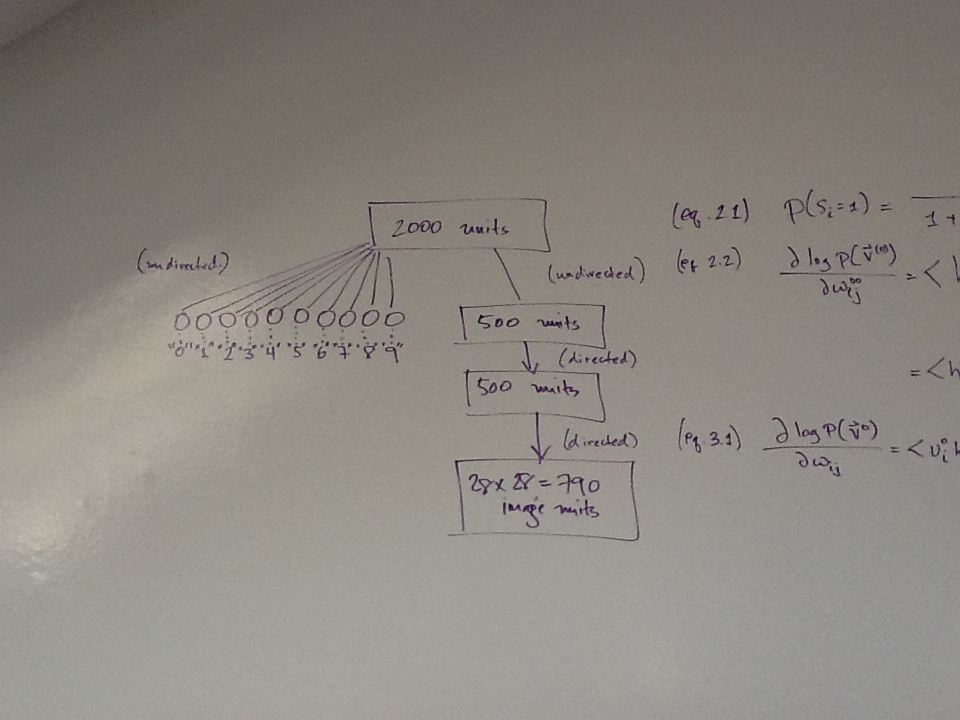 2000 units
(undirected)
(undirected)
"0" "1" "2" "3" "4" "5" "6" "7" "8" "9"
500 units
(directed)
500 units
(directed)
28 x 28 = 790
image units
(eq. 2.1) P(Sᵢ=1) = 1 +
(eq 2.2) ∂ log p(v⃗⁽⁰⁾) / ∂w∞ij = < h
= < h
(eq. 3.1) ∂ log P(v⃗⁰) / ∂wij = < vᵢ⁰ h